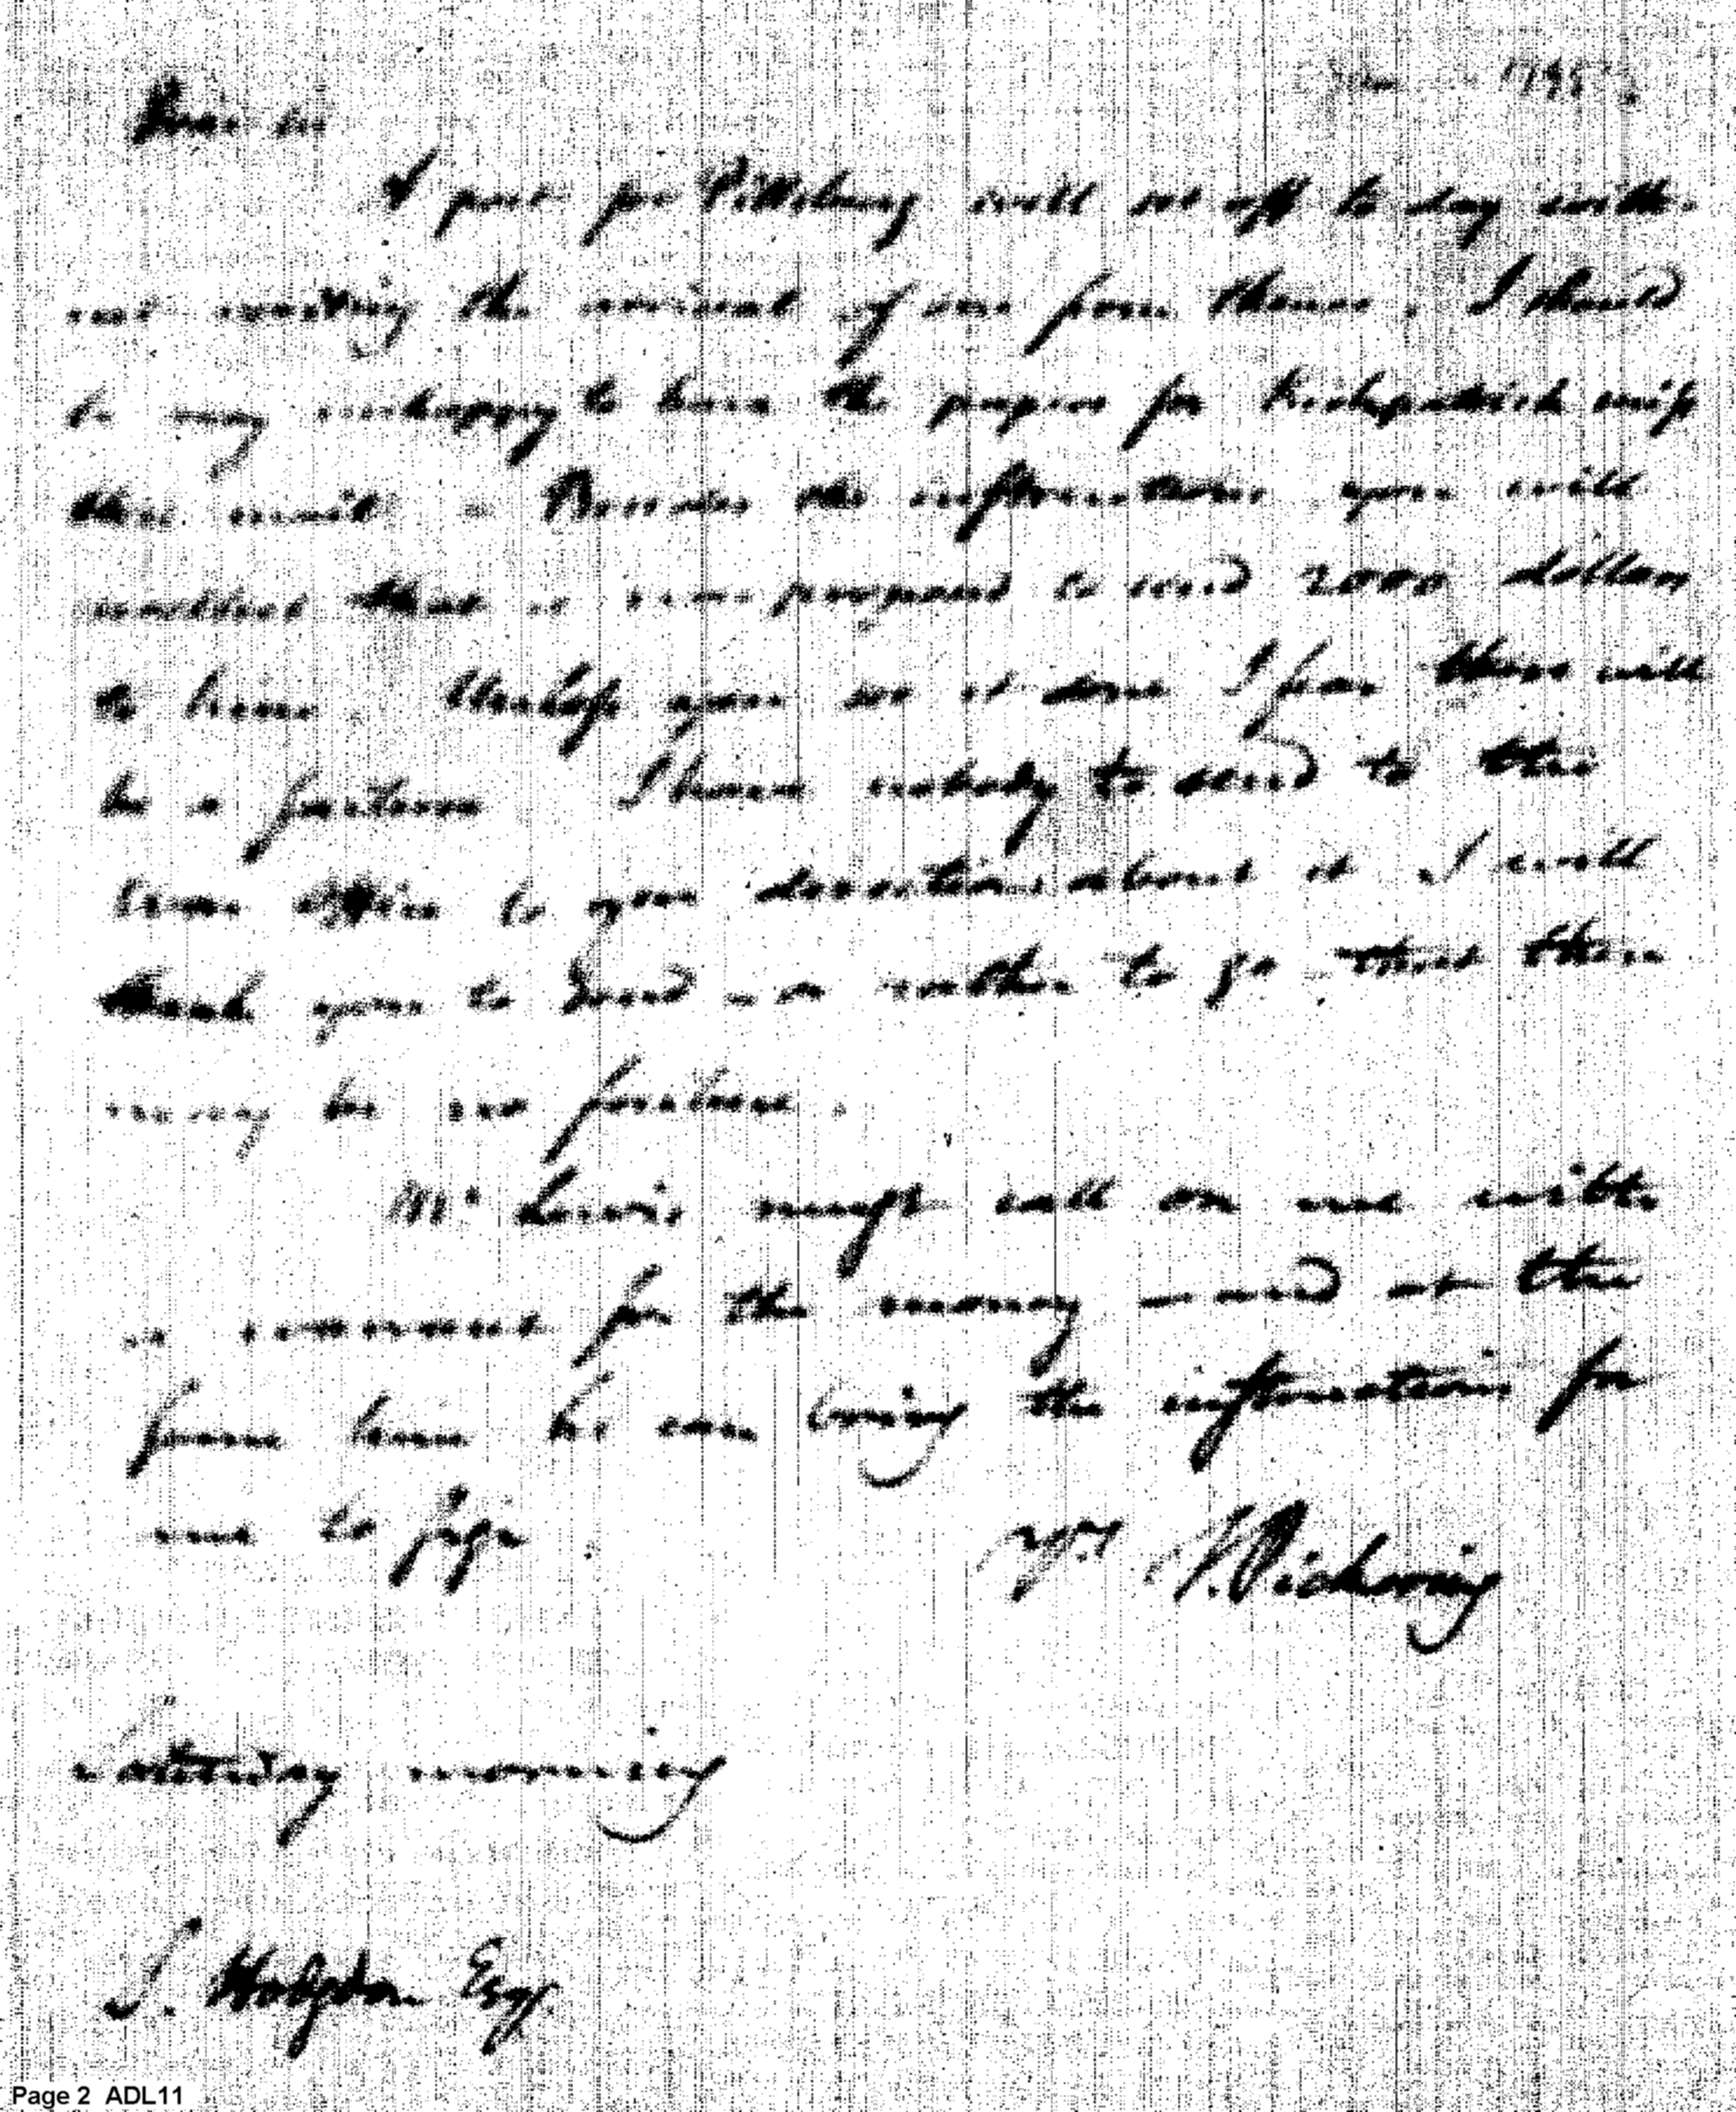 Jan 1795
Dear sir
A post for Pittsburg will set off to day with-
out waiting the arrival of one from thence. I should
be very unhappy to have the papers for Kirkpatrick miss
this mail - Besides the instructions you will
recollect that it was proposed to send 2000 dollars
to him. Unless you see it done I fear there will
be a failure I have nobody to send to the
to your directions about it I will
thank you to send - or rather to go that there
may be no failure.
Mr. Lewis must call on me with
a warrant for the money - and at the
same time he can bring the instructions for
me to sign
yrs T. Pickering
Saturday morning
S. Hodgdon Esqr.
Page 2 ADL11